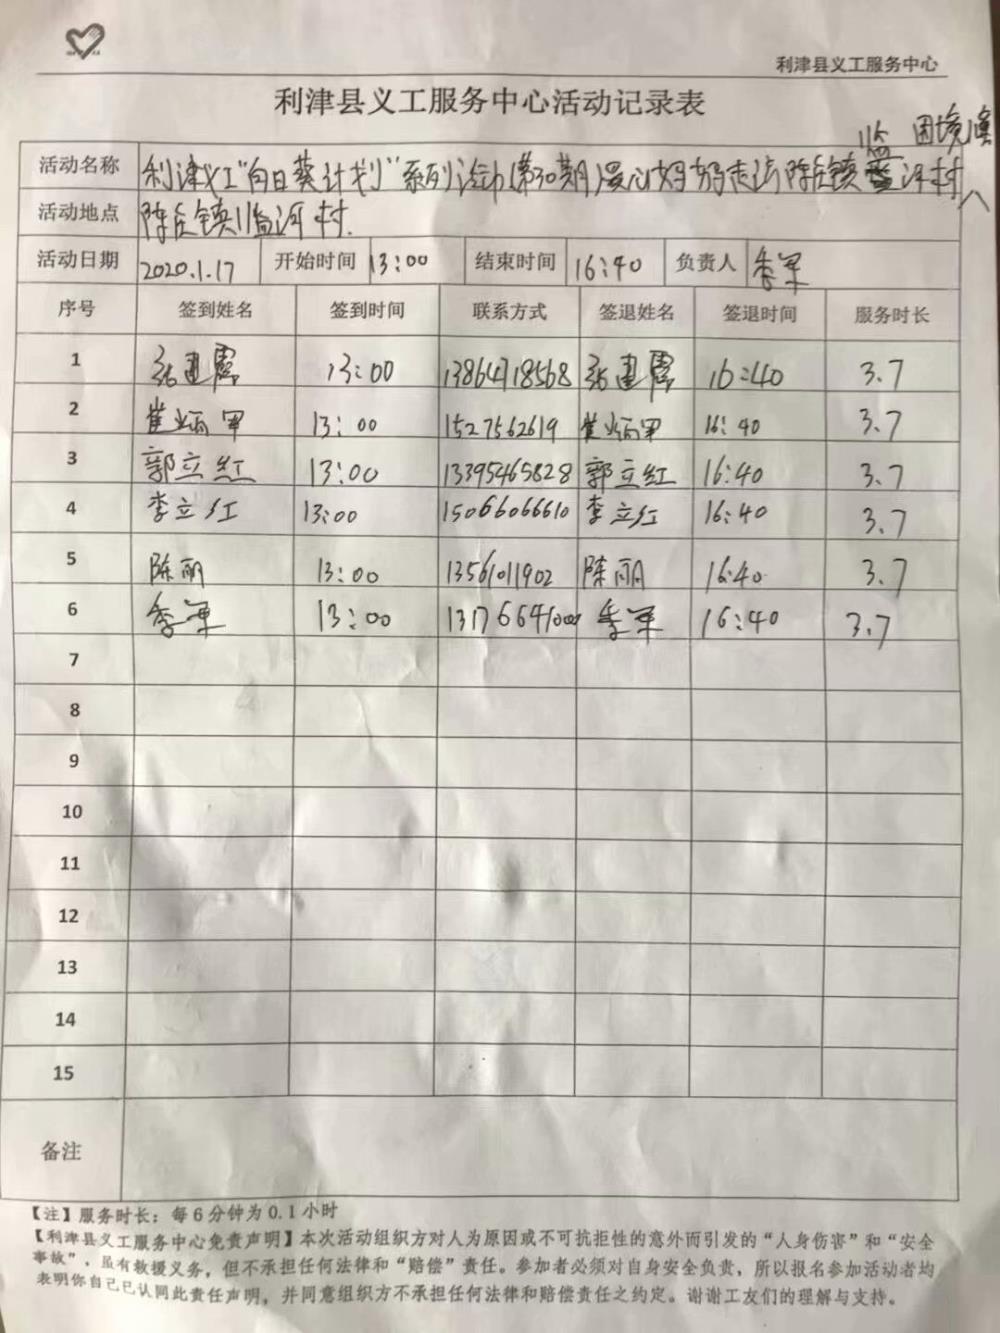 利津县义工服务中心
利津县义工服务中心活动记录表
困境
临
活动名称 利津义工"向日葵计划"系列活动(第30期)爱心妈妈走访陈庄镇 河村
活动地点 陈庄镇临河村.
活动日期 2020.1.17 开始时间 13:00 结束时间 16:40 负责人 季军
序号 签到姓名 签到时间 联系方式 签退姓名 签退时间 服务时长
1 张建霞 13:00 13864718568 张建霞 16:40 3.7
2 崔炳军 13:00 1527562619 崔炳军 16:40 3.7
3 郭立红 13:00 13395465828 郭立红 16:40 3.7
4 李立红 13:00 15066066610 李立红 16:40 3.7
5 陈丽 13:00 13561011902 陈丽 16:40 3.7
6 季军 13:00 13176641000 季军 16:40 3.7
7
8
9
10
11
12
13
14
15
备注
【注】服务时长：每6分钟为0.1小时
【利津县义工服务中心免责声明】本次活动组织方对人为原因或不可抗拒性的意外而引发的“人身伤害”和“安全
事故”，虽有救援义务，但不承担任何法律和“赔偿”责任。参加者必须对自身安全负责，所以报名参加活动者均
表明你自己已认同此责任声明，并同意组织方不承担任何法律和赔偿责任之约定。谢谢工友们的理解与支持。